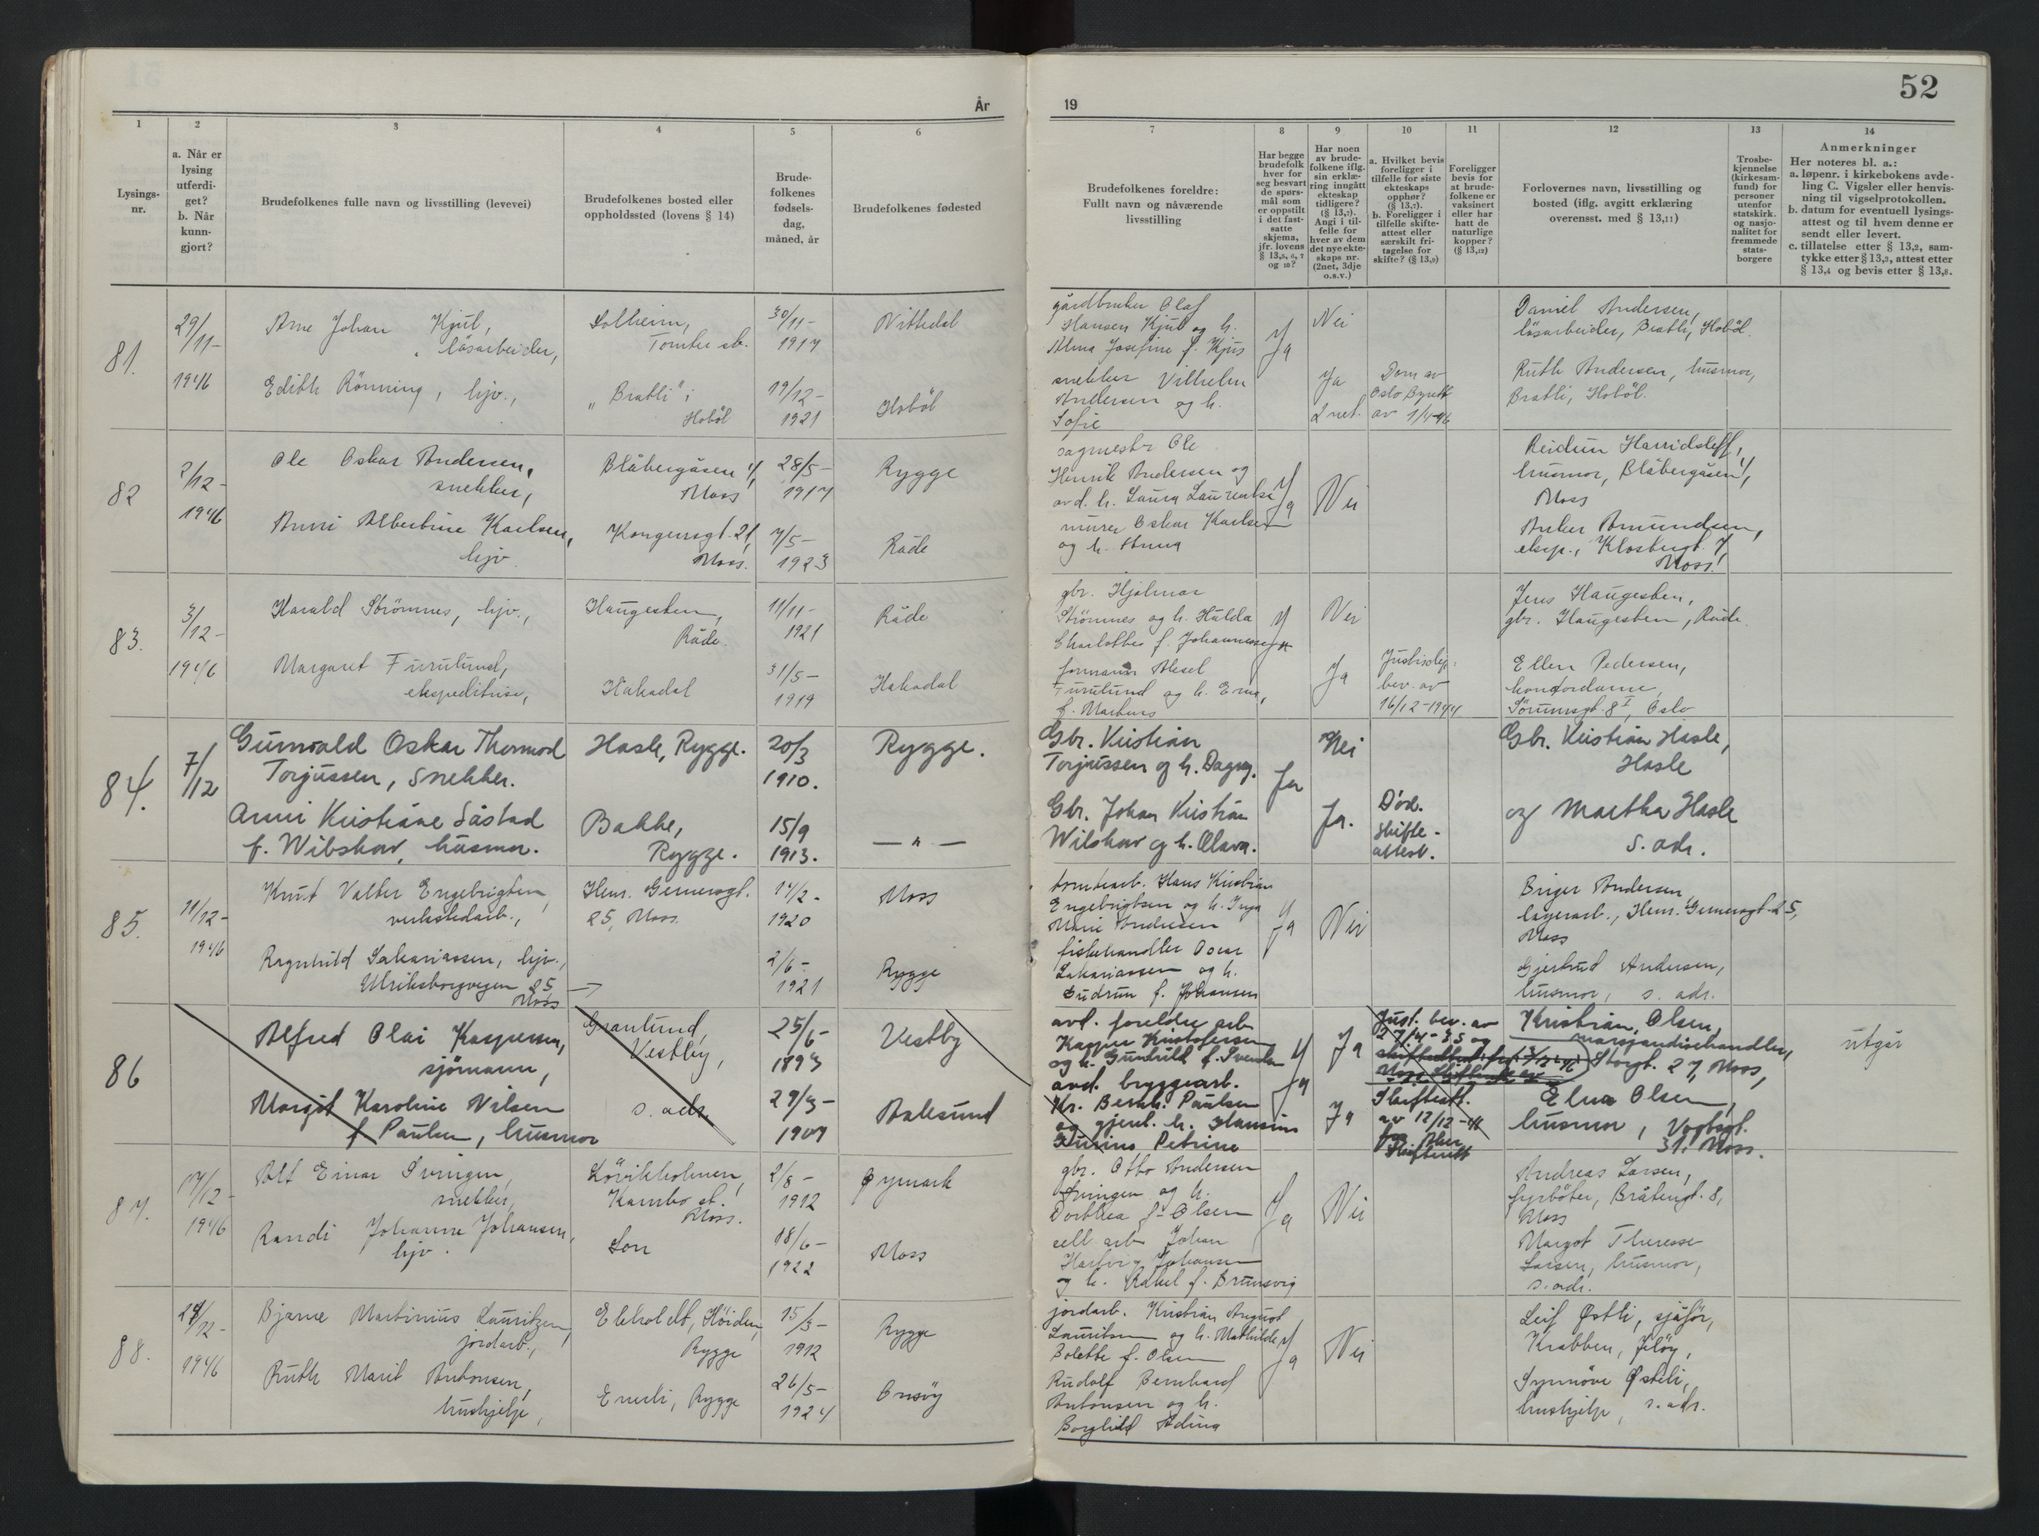 52
År
19
1
2
3
4
5
6
7
8
9
10
11
12
13
14
Lysings-
nr.
a. Når er
lysing
utferdi-
get?
b. Når
kunn-
gjort?
Brudefolkenes fulle navn og livsstilling (levevei)
Brudefolkenes bosted eller
oppholdssted (lovens § 14)
Brude-
folkenes
fødsels-
dag,
måned, år
Brudefolkenes fødested
Brudefolkenes foreldre:
Fullt navn og nåværende
livsstilling
Har begge
brudefolk
hver for
seg besvart
de spørs-
mål som
er oppstilt
i det fast-
satte
skjema,
jfr. lovens
§ 13,5, 6, 7
og 10?
Har noen
av brude-
folkene iflg.
sin erklæ-
ring inngått
ekteskap
tidligere?
(§ 13,7).
Angi i til-
felle for
hver av dem
det nye ekte-
skaps nr.
(2net, 3dje
o.s.v.)
a. Hvilket bevis
foreligger i
tilfelle for siste
ekteskaps
opphør?
(§ 13,7).
b. Foreligger i
tilfelle skifte-
attest eller
særskilt fri-
tagelse for
skifte? (§ 13,9)
Foreligger
bevis for
at brude-
folkene er
vaksinert
eller har
hatt de
naturlige
kopper?
(§ 13,12)
Forlovernes navn, livsstilling og
bosted (iflg. avgitt erklæring
overensst. med § 13,11)
Trosbe-
kjennelse
(kirkesam-
fund) for
personer
utenfor
statskirk.
og nasjo-
nalitet for
fremmede
stats-
borgere
Anmerkninger
Her noteres bl. a.:
a. løpenr. i kirkebokens avde-
ling C. Vigsler eller henvis-
ning til vigselprotokollen.
b. datum for eventuell lysings-
attest og til hvem denne er
sendt eller levert.
c. tillatelse etter § 13,2, sam-
tykke etter § 13,3, attest etter
§ 13,4 og bevis etter § 13,8.
81.
29/11-
1946
Arne Johan Kjul,
løsarbeider,
Solheim,
Tomter st.
30/11-
1917
Nittedal
gårdbruker Olaf
Hansen Kjul og h.
Alma Josefine f. Kjus
Ja
Nei
Daniel Andersen,
løsarbeider, Bratli, Hobøl.
Edith Rönning, hjv.,
"Bratli" i
Hobøl
19/12-
1921
Hobøl
snekker Vilhelm
Andersen og h.
Sofie
Ja
2 net.
Dom av
Oslo Byrett
av 1/4-46
Ruth Andersen, husmor,
Bratli, Hobøl.
82
2/12-
1946
Ole Oskar Andersen,
snekker,
Blåbergåsen 1,
Moss
28/5-
1917
Rygge
sagmester Ole
Henrik Andersen og
avd. h. Laura
Ja
Nei
husmor, Blåbergåsen 1,
Moss
Anni Albertine Karlsen,
hjv.
Kongensgt. 21,
Moss.
7/5-
1923
Råde
murer Oskar Karlsen
og h. Anna
Anker Amundsen,
eksp., Klostergt. 7,
Moss.
83.
3/12-
1946
Harald Strömnes, hjv.,
Haugesten,
Råde.
11/11-
1921
Råde
gbr. Hjalmar
Strömnes og h. Hulda
Charlotte f. Johannessen
Ja
Nei
Jens Haugesten,
gbr. Haugesten, Råde.
Margaret Furulund,
ekspeditrise,
Hakadal
31/5-
1919
Hakadal
formann Aksel
Furulund og h. Erna,
Ja
bev. av
16/12-1944
Ellen Pedersen,
kontordame,
Sörumsgt. 8 I, Oslo
84.
7/12
Gunvald Oskar Thormod
Torjussen, snekker.
Hasle, Rygge.
20/3
1910.
Rygge.
Gbr. Kristian
Torjussen og h. Dagny.
Ja
Nei
Gbr. Kristian Hasle,
Hasle
Anni Kristiane Såstad
f. Wibskov, husmor.
Bakke,
Rygge.
15/9
1913.
— " —
Gbr. Johan Kristian
Wilskow og h. Olava.
Ja.
Død.
Skifte-
attest.
og Martha Hasle
s. adr.
85.
11/12-
1946
Knut Valter Engebrigtsen,
verkstedarb.,
Henr. Gernersgt.
25, Moss.
14/2-
1920
Moss
tomtearb. Hans Kristian
Engebrigtsen og h. Inga
Marie Andersen
Ja
Nei
Birger Andersen
lagerarb., Henr. Gernersgt. 25,
Moss
Ragnhild Sakariassen, hjv.,
Ulriksborgveien 25,
Moss
2/6-
1921
Rygge
fiskehandler Oscar
Sakariassen og h.
Gudrun f. Johansen
Gjertrud Andersen,
husmor, s. adr.
86
Alfred Olai Kaspersen,
sjömann,
Granlund,
Vestby,
25/6-
1893
Vestby
avd. foreldre arb.
Kasper Kristofersen
og h. Gunhild f. Svendsen
Ja
Ja
Just. bev. av
27/4-35 og
Kristian Olsen,
marsjandisehandler,
Storgt. 27, Moss,
utgår
Margit Karoline Nilsen
f. Paulsen, husmor
s. adr.
29/3-
1907
Ålesund
avd. bryggearb.
Kr. Bernh. Paulsen
og gjenl. h. Hansine
Petrine
Ja
Skifteatt.
av 12/12-46
fra Aker
Skifterett
Elna Olsen,
husmor, Vogtsgt.
31. Moss.
87.
17/12-
1946
Alf Einar Svingen,
snekker,
Lövikholmen,
Kambo st.
Moss.
2/8-
1912
Øymark
gbr. Otto Andersen
Svingen og h.
Dorthea f. Olsen
Ja
Nei
Andreas Larsen,
fyrböter, Bråtengt. 8,
Moss
Randi Johanne Johansen,
hjv.
Son
18/6-
1922
Moss
cell. arb. Johan
Hartvig Johansen
og h. Rakel f. Brunsvig
Margot Therese
Larsen, husmor,
s. adr.
88.
/12-
1946
Bjarne Martinius Lauritzen,
jordarb.,
Ekholdt, Höiden,
Rygge
15/3-
1912
Rygge
jordarb. Kristian August
Lauritsen og h. Mathilde
Bolette f. Olsen
Ja
Nei
Leif Østli, sjåför,
Krabben, Jelöy,
Ruth Marit Antonsen,
hushjelp,
Enerli, Rygge
26/5-
1924
Onsøy
Rudolf Bernhard
Antonsen og h.
Borghild Adina
Synnöve Østli,
hushjelp, s. adr.